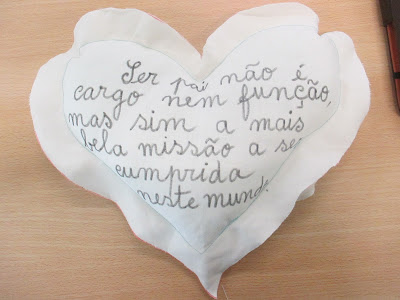 Ser pai não é
cargo nem função,
mas sim a mais
bela missão a ser
cumprida
neste mundo.